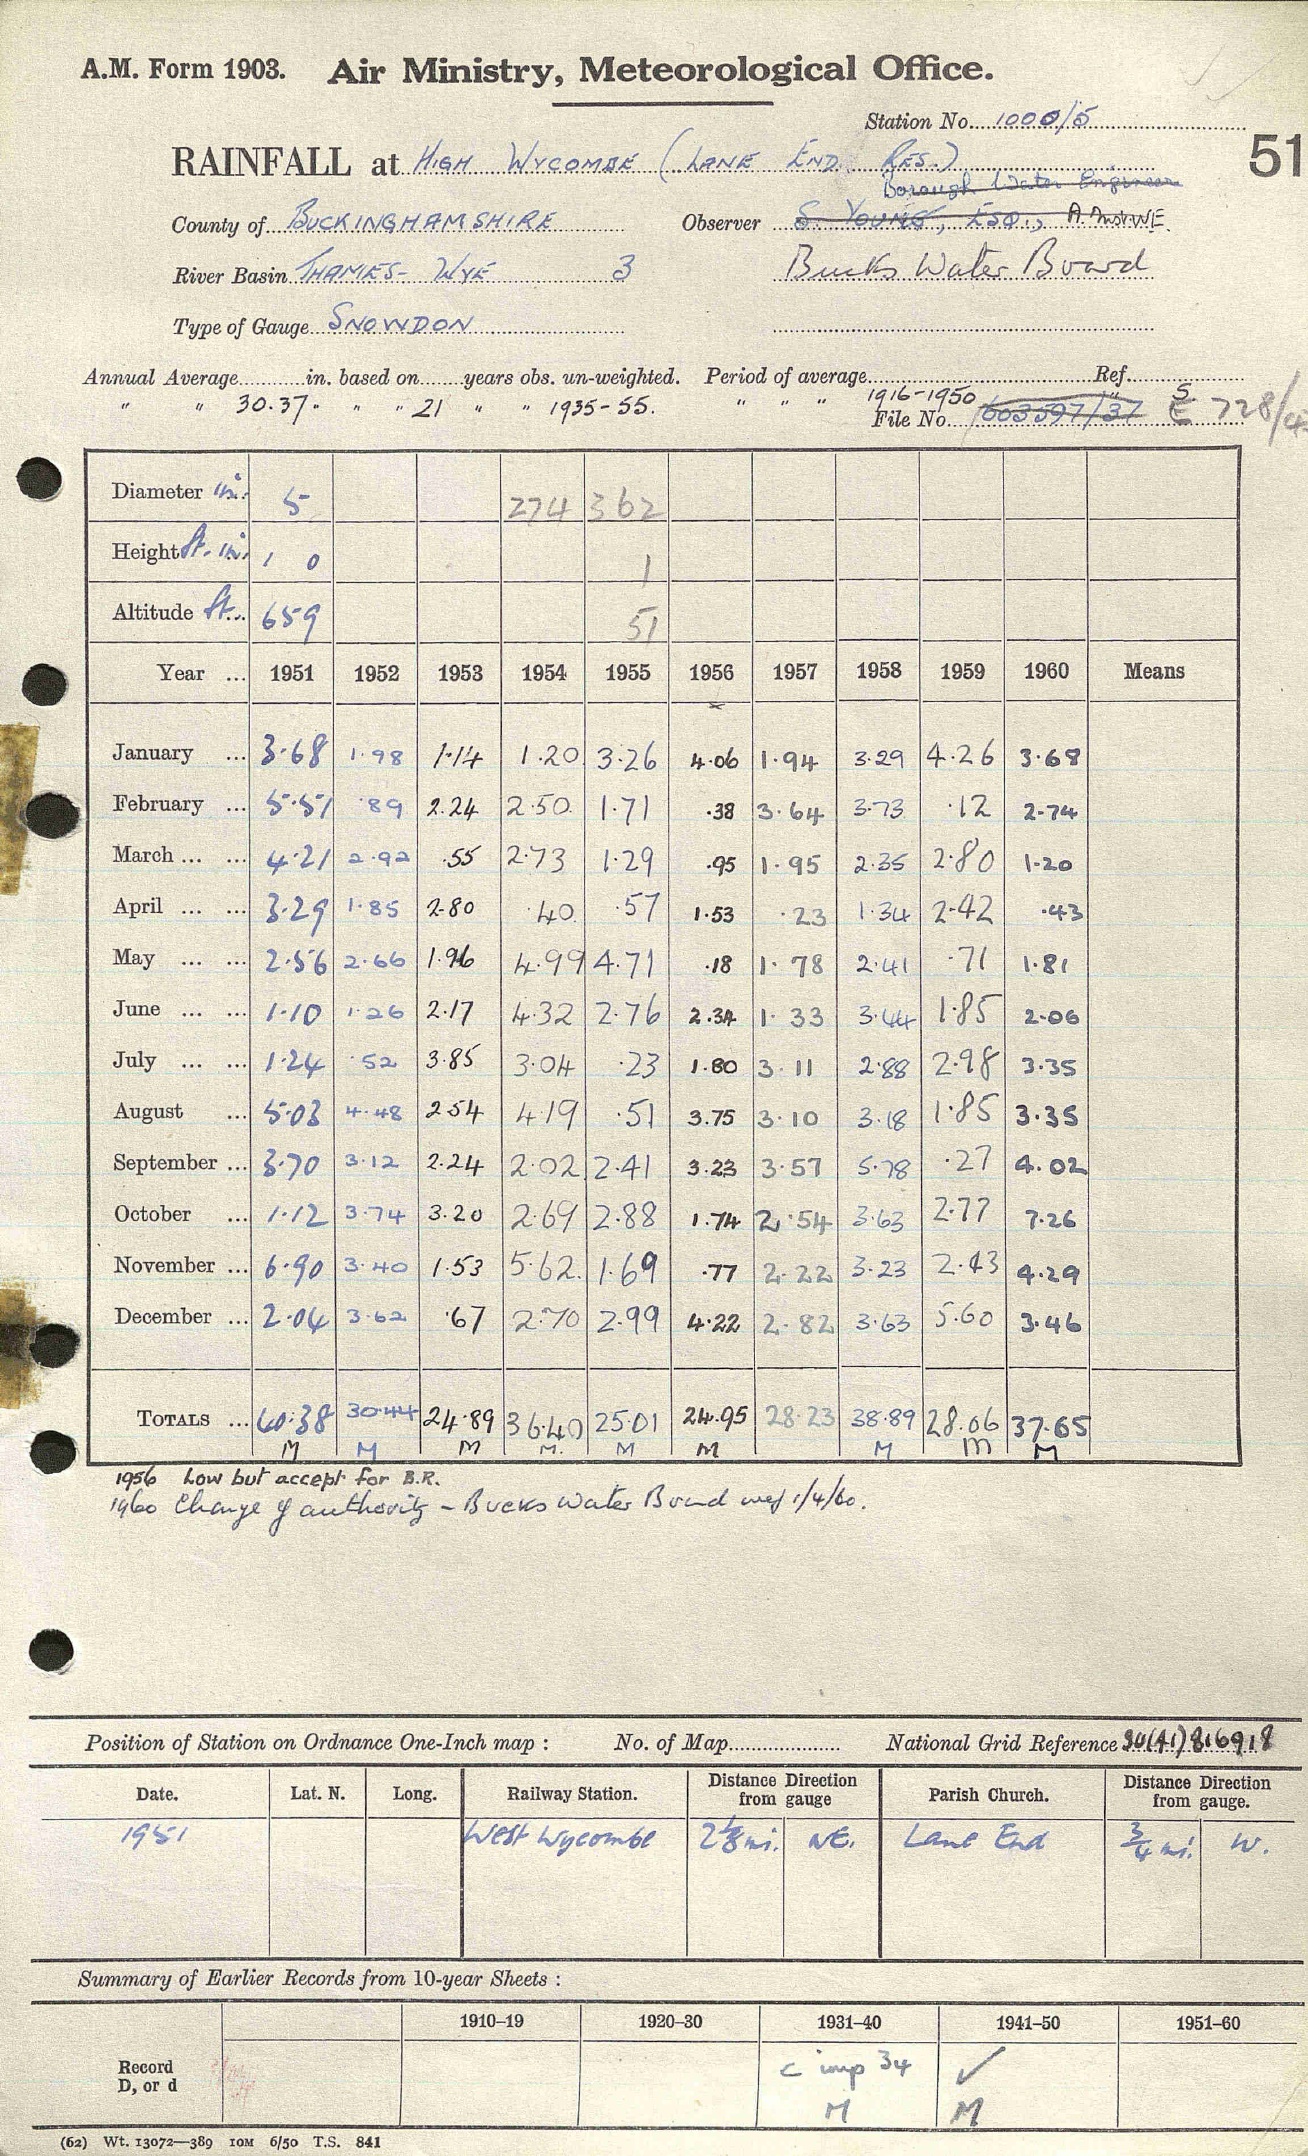 A.M. Form 1903. Air Ministry, Meteorological Office.
Station No. 1000/5
RAINFALL at HIGH WYCOMBE (LANE END RES.) 51
Borough Water Engineer
County of BUCKINGHAMSHIRE Observer S. YOUNG, ESQ., A.Inst.W.E.
River Basin THAMES - WYE 3 Bucks Water Board
Type of Gauge SNOWDON
Annual Average in. based on years obs. un-weighted. Period of average Ref.
" " 30.37 " " " 21 " " 1935-55. " " " 1916-1950 "
File No. 603597/37 728/4
Diameter in. 5 274 362
Height ft. in. 1 0 1
Altitude ft. 659 51
Year ... 1951 1952 1953 1954 1955 1956 1957 1958 1959 1960 Means
x
January ... 3.68 1.98 1.14 1.20 3.26 4.06 1.94 3.29 4.26 3.68
February ... 5.57 .89 2.24 2.50 1.71 .38 3.64 3.73 .12 2.74
March ... ... 4.21 2.92 .55 2.73 1.29 .95 1.95 2.35 2.80 1.20
April ... ... 3.29 1.85 2.80 .40 .57 1.53 .23 1.34 2.42 .43
May ... ... 2.56 2.66 1.96 4.99 4.71 .18 1.78 2.41 .71 1.81
June ... ... 1.10 1.26 2.17 4.32 2.76 2.34 1.33 3.44 1.85 2.06
July ... ... 1.24 .52 3.85 3.04 .23 1.80 3.11 2.88 2.98 3.35
August ... 5.03 4.48 2.54 4.19 .51 3.75 3.10 3.18 1.85 3.35
September ... 3.70 3.12 2.24 2.02 2.41 3.23 3.57 5.78 .27 4.02
October ... 1.12 3.74 3.20 2.69 2.88 1.74 2.54 3.63 2.77 7.26
November ... 6.90 3.40 1.53 5.62 1.69 .77 2.22 3.23 2.43 4.29
December ... 2.04 3.62 .67 2.70 2.99 4.22 2.82 3.63 5.60 3.46
TOTALS ... 40.38 30.44 24.89 36.40 25.01 24.95 28.23 38.89 28.06 37.65
M M M M. M M M M M
1956 Low but accept for B.R.
1960 Change of authority - Bucks Water Board wef 1/4/60.
Position of Station on Ordnance One-Inch map : No. of Map National Grid Reference SU(41)816918
Date. Lat. N. Long. Railway Station. Distance Direction from gauge Parish Church. Distance Direction from gauge.
1951 West Wycombe 2⅛ mi. NE. Lane End ¾ mi. W.
Summary of Earlier Records from 10-year Sheets :
1910–19 1920–30 1931–40 1941–50 1951–60
Record D, or d c imp 34 ✓
M M
(62) Wt. 13072—389 10M 6/50 T.S. 841